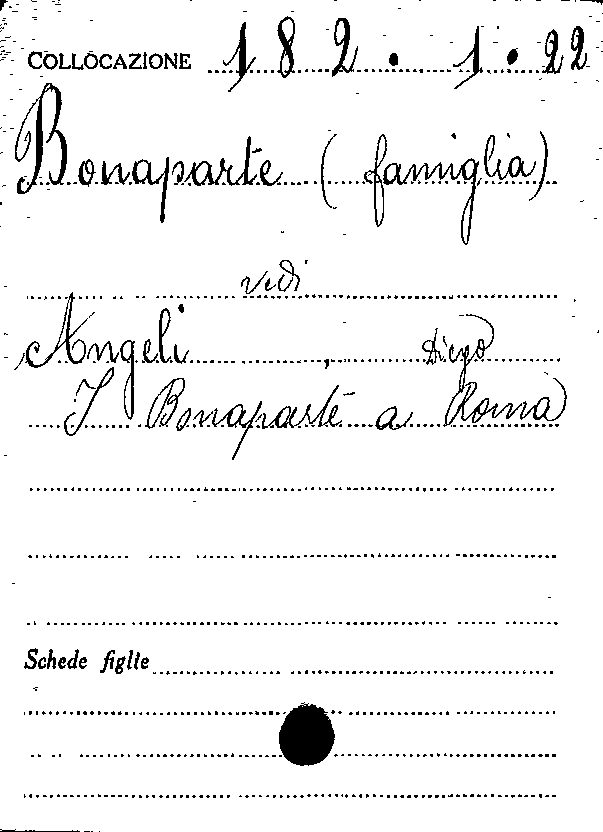 COLLOCAZIONE 182.1.22
Bonaparte (famiglia)
vedi
Angeli, Diego
I Bonaparte a Roma
Schede figlie